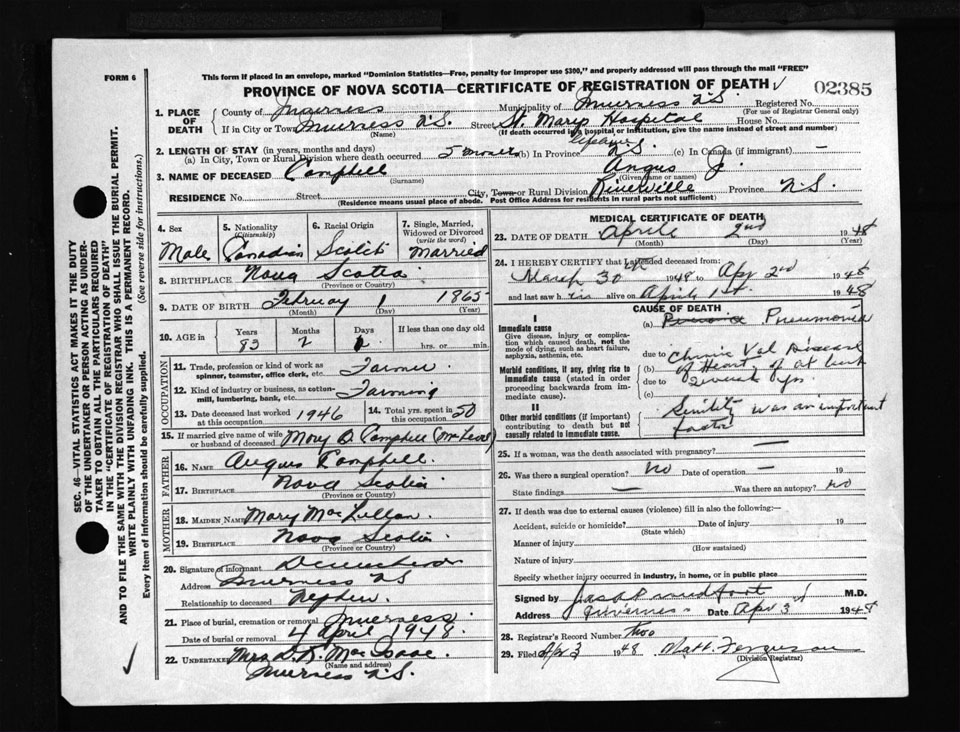 FORM 6
This form if placed in an envelope, marked "Dominion Statistics—Free, penalty for improper use $300," and properly addressed will pass through the mail "FREE"
PROVINCE OF NOVA SCOTIA—CERTIFICATE OF REGISTRATION OF DEATH
02385
1. PLACE OF DEATH
County of Inverness Municipality of Inverness N.S. Registered No.
(For use of Registrar General only)
If in City or Town Inverness N.S. Street St. Marys Hospital House No.
(Name) (If death occurred in a hospital or institution, give the name instead of street and number)
2. LENGTH OF STAY (in years, months and days)
(a) In City, Town or Rural Division where death occurred (b) In Province N.S. (c) In Canada (if immigrant) —
3. NAME OF DECEASED Campbell Angus J.
(Surname) (Given name or names)
RESIDENCE No. Street City, Town or Rural Division Province N.S.
(Residence means usual place of abode. Post Office Address for residents in rural parts not sufficient)
4. Sex Male
5. Nationality (Citizenship) Canadian
6. Racial Origin Scotch
7. Single, Married, Widowed or Divorced (write the word) Married
8. BIRTHPLACE Nova Scotia
(Province or Country)
9. DATE OF BIRTH February 1 1865
(Month) (Day) (Year)
10. AGE in Years Months Days If less than one day old
83 2 hrs. or min.
OCCUPATION
11. Trade, profession or kind of work as spinner, teamster, office clerk, etc. Farmer
12. Kind of industry or business, as cotton-mill, lumbering, bank, etc. Farming
13. Date deceased last worked at this occupation 1946
14. Total yrs. spent in this occupation 50
15. If married give name of wife or husband of deceased Mary Campbell
FATHER
16. NAME Angus Campbell
17. BIRTHPLACE Nova Scotia
(Province or Country)
MOTHER
18. MAIDEN NAME Mary MacLellan
19. BIRTHPLACE Nova Scotia
(Province or Country)
20. Signature of informant
Address Inverness N.S.
Relationship to deceased Nephew
21. Place of burial, cremation or removal Inverness
Date of burial or removal 4 April 1948
22. UNDERTAKER Mrs D. R. MacIsaac
(Name and address)
Inverness N.S.
MEDICAL CERTIFICATE OF DEATH
23. DATE OF DEATH April 2nd 1948
(Month) (Day) (Year)
24. I HEREBY CERTIFY that I attended deceased from:
March 30th 1948 to Apr 2nd 1948
and last saw him alive on April 1st 1948
CAUSE OF DEATH
I
Immediate cause
Give disease, injury or complication which caused death, not the mode of dying, such as heart failure, asphyxia, asthenia, etc.
(a) Pneumonia
Morbid conditions, if any, giving rise to immediate cause (stated in order proceeding backwards from immediate cause)
due to (b) Chronic Val Disease of Heart, of at least
due to (c) yrs.
II
Other morbid conditions (if important) contributing to death but not causally related to immediate cause.
Senility was an important factor
25. If a woman, was the death associated with pregnancy? —
26. Was there a surgical operation? No Date of operation — 19
State findings — Was there an autopsy? no
27. If death was due to external causes (violence) fill in also the following:—
Accident, suicide or homicide? Date of injury 19
(State which)
Manner of injury
(How sustained)
Nature of injury
Specify whether injury occurred in industry, in home, or in public place
Signed by M.D.
Address Inverness Date Apr 3 1948
28. Registrar's Record Number two
29. Filed Apr 3 1948 Matt. Ferguson
(Division Registrar)
SEC. 46—VITAL STATISTICS ACT MAKES IT THE DUTY
OF THE UNDERTAKER OR PERSON ACTING AS UNDER-
TAKER TO OBTAIN ALL THE PARTICULARS REQUIRED
IN THE "CERTIFICATE OF REGISTRATION OF DEATH"
AND TO FILE THE SAME WITH THE DIVISION REGISTRAR WHO SHALL ISSUE THE BURIAL PERMIT.
WRITE PLAINLY WITH UNFADING INK. THIS IS A PERMANENT RECORD.
Every item of information should be carefully supplied. (See reverse side for instructions.)